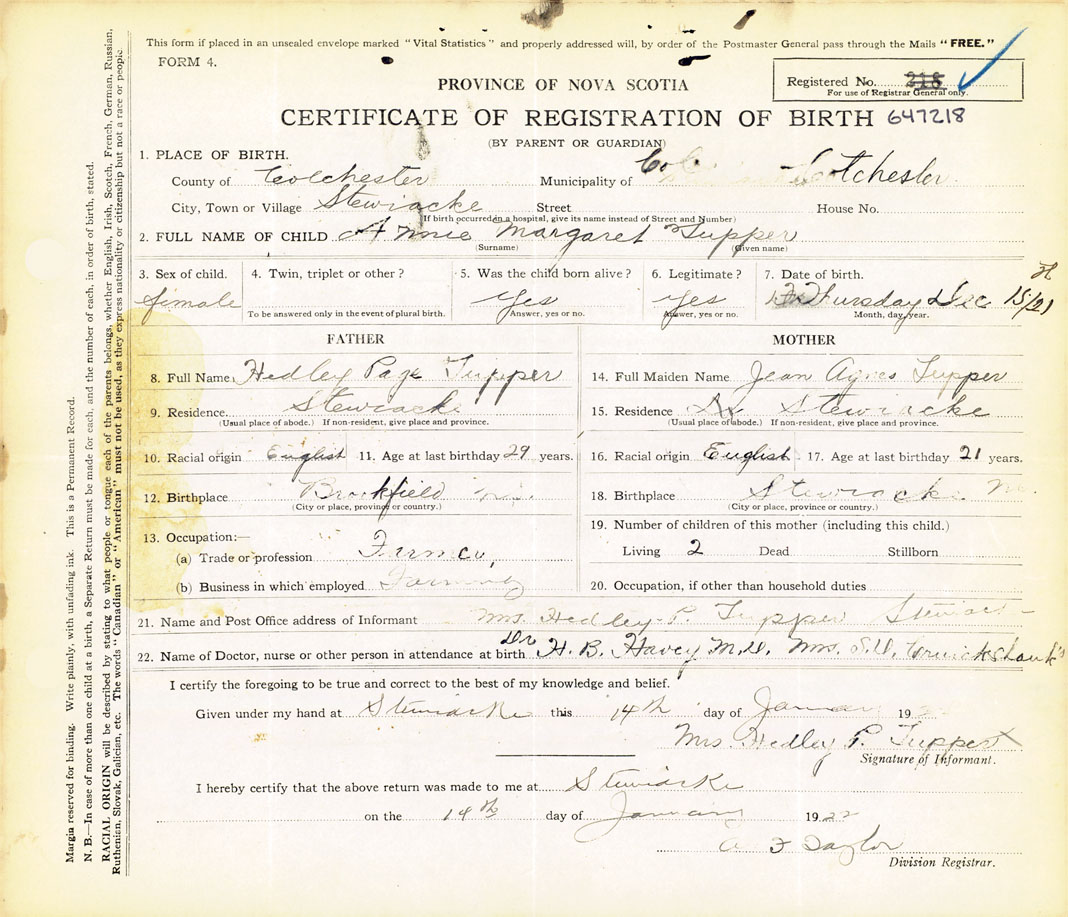 This form if placed in an unsealed envelope marked "Vital Statistics" and properly addressed will, by order of the Postmaster General pass through the Mails "FREE."
FORM 4.
PROVINCE OF NOVA SCOTIA
Registered No. 218
For use of Registrar General only.
CERTIFICATE OF REGISTRATION OF BIRTH 647218
(BY PARENT OR GUARDIAN)
1. PLACE OF BIRTH.
County of Colchester Municipality of Colchester
City, Town or Village Stewiacke Street House No.
(If birth occurred in a hospital, give its name instead of Street and Number)
2. FULL NAME OF CHILD Annie Margaret Tupper
(Surname) (Given name)
3. Sex of child. 4. Twin, triplet or other? 5. Was the child born alive? 6. Legitimate? 7. Date of birth.
female Yes Yes Thursday Dec 15/21
To be answered only in the event of plural birth. Answer, yes or no. Answer, yes or no. Month, day, year.
FATHER
8. Full Name Hedley Page Tupper
9. Residence. Stewiacke
(Usual place of abode.) If non-resident, give place and province.
10. Racial origin English 11. Age at last birthday 29 years.
12. Birthplace Brookfield
(City or place, province or country.)
13. Occupation:—
(a) Trade or profession Farmer
(b) Business in which employed Farming
MOTHER
14. Full Maiden Name Jean Agnes Tupper
15. Residence Stewiacke
(Usual place of abode.) If non-resident, give place and province.
16. Racial origin English 17. Age at last birthday 21 years.
18. Birthplace Stewiacke
(City or place, province or country.)
19. Number of children of this mother (including this child.)
Living 2 Dead Stillborn
20. Occupation, if other than household duties
21. Name and Post Office address of Informant Mrs. Hedley P. Tupper
22. Name of Doctor, nurse or other person in attendance at birth Dr H. B. Havey M.D. Mrs.
I certify the foregoing to be true and correct to the best of my knowledge and belief.
Given under my hand at Stewiacke this 14th day of January 19
Mrs. Hedley P. Tupper
Signature of Informant.
I hereby certify that the above return was made to me at Stewiacke
on the 14th day of January 1922
A F Taylor
Division Registrar.
Margin reserved for binding. Write plainly, with unfading ink. This is a Permanent Record.
N. B.—In case of more than one child at a birth, a Separate Return must be made for each, and the number of each, in order of birth, stated.
RACIAL ORIGIN will be described by stating to what people or tongue each of the parents belongs, whether English, Irish, Scotch, French, German, Russian,
Ruthenian, Slovak, Galician, etc. The words "Canadian" or "American" must not be used, as they express nationality or citizenship but not a race or people.